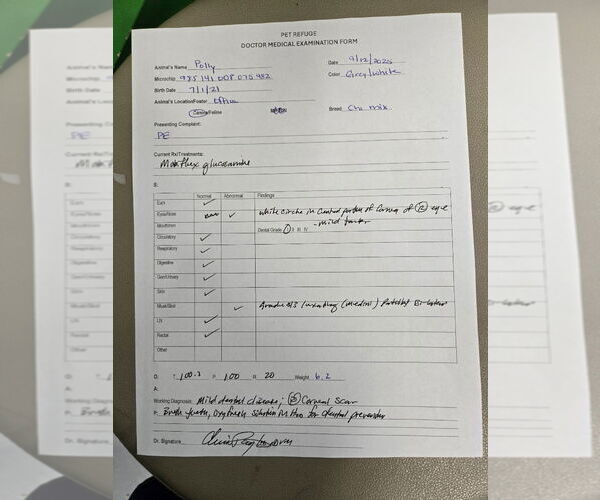 PET REFUGE
DOCTOR MEDICAL EXAMINATION FORM
Animal's Name Polly Date 9/12/2025
Microchip 985 141 008 076 482 Color Grey/white
Birth Date 7/1/21
Animal's Location/Foster Office
Canine/Feline Breed Chi mix
Presenting Complaint:
PE
Current Rx/Treatments:
glucosamine
S:
Normal Abnormal Findings
Ears ✓
Eyes/Nose ✓ white circle in central portion of Cornea of R eye
Mouth/teeth Dental Grade I II III IV - mild tartar
Circulatory ✓
Respiratory ✓
Digestive ✓
Gen/Urinary ✓
Skin ✓
Musk/Skel ✓ Grade luxating (medial) Patellas
LN ✓
Rectal ✓
Other
O: T: 100.3 P: 100 R: 20 Weight 6.2
A:
Working Diagnosis: Mild dental disease; R Corneal Scar
P: Brush teeth, Oxyfresh Solution in H2O for dental prevention
Dr. Signature